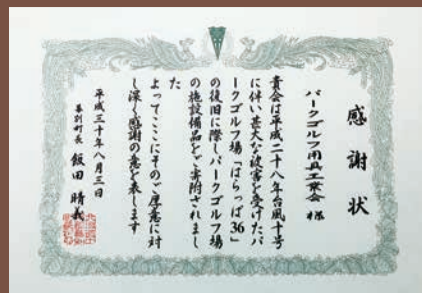 感謝状
パークゴルフ用具工業会 様
貴会は平成二十八年台風十号
に伴い甚大な被害を受けたパ
ークゴルフ場「はらっぱ36」
の復旧に際しパークゴルフ場
の施設備品をご寄附されまし
た
よってここにそのご厚意に対
し深く感謝の意を表します
平成三十年八月三日
幕別町長 飯田 晴義